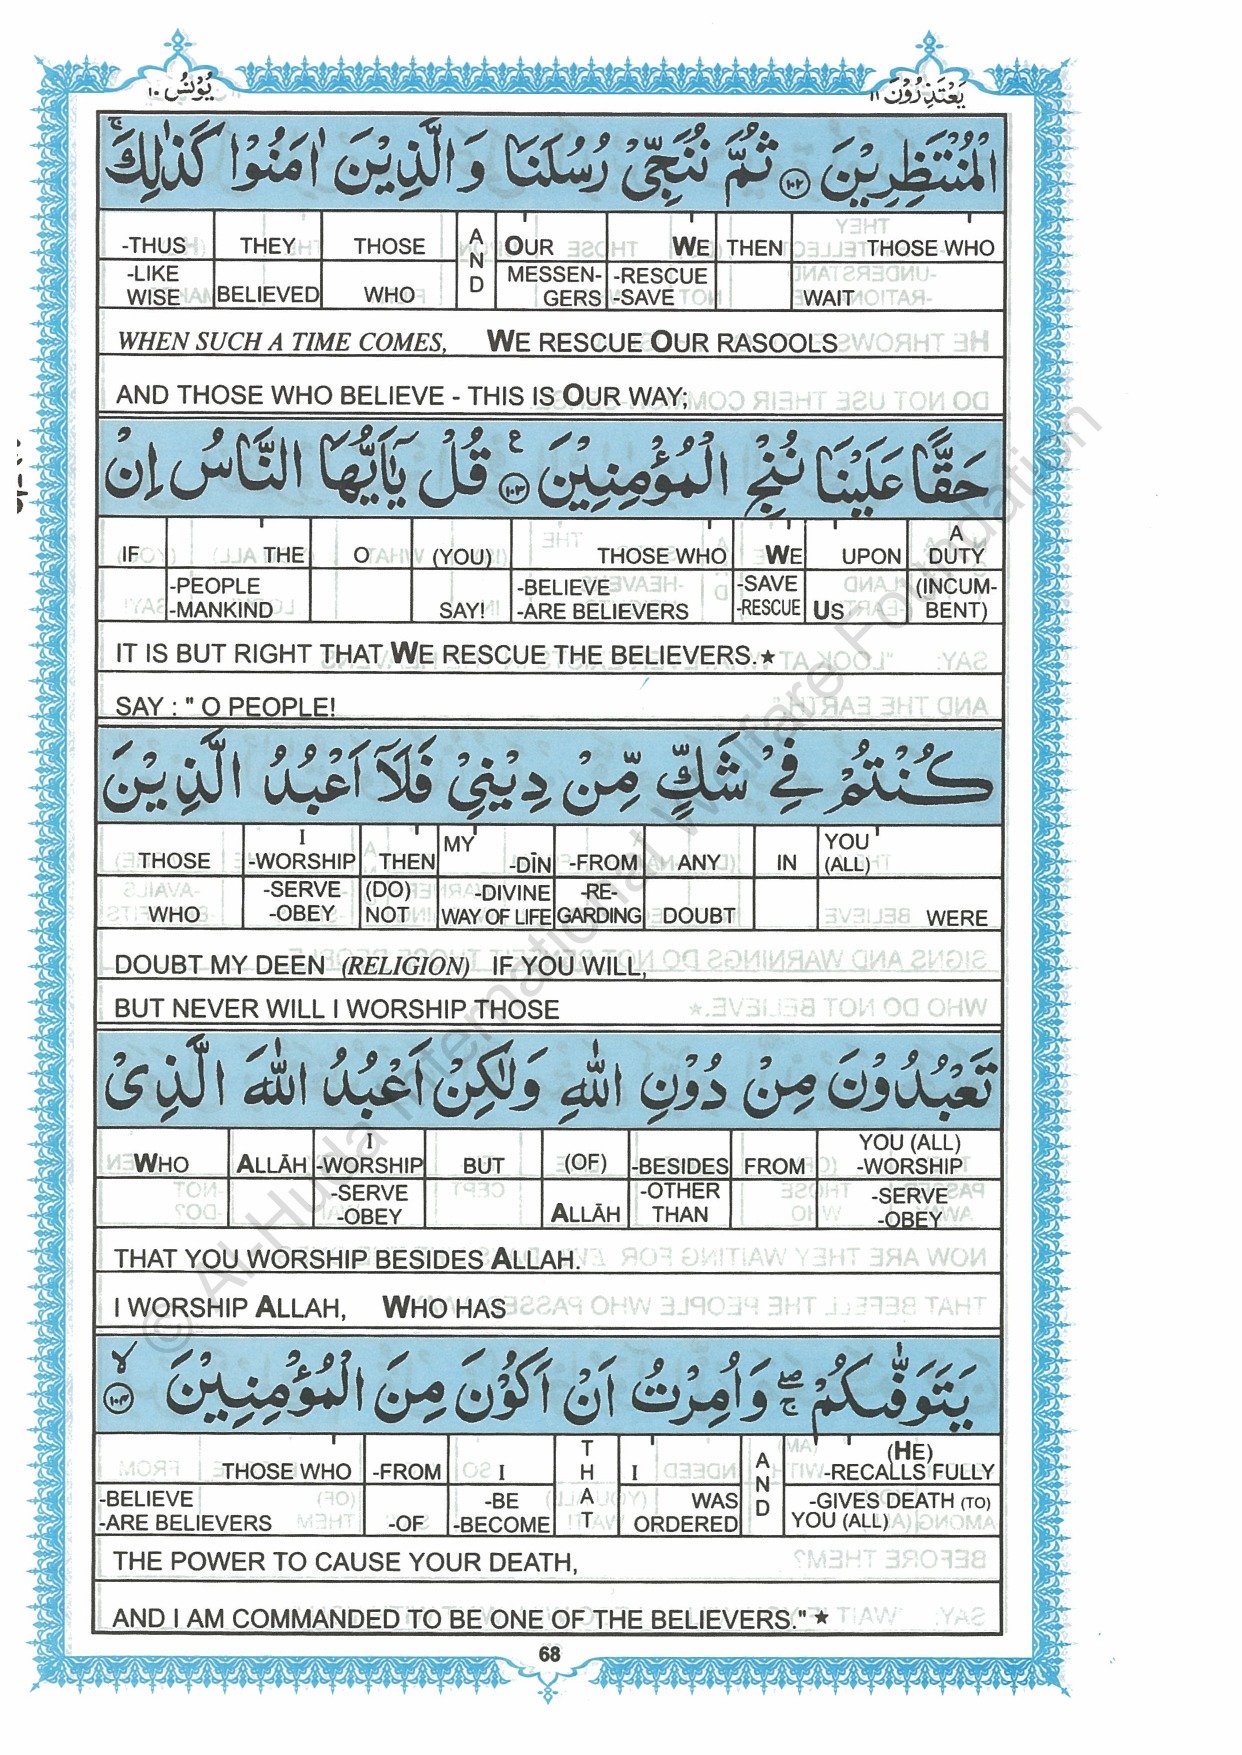 يُوْنُسُ ١٠
يَعْتَذِرُوْنَ ١١
الْمُنْتَظِرِيْنَ ١٠٢ ثُمَّ نُنَجِّيْ رُسُلَنَا وَالَّذِيْنَ اٰمَنُوْا كَذٰلِكَ ۚ
-THUS THEY THOSE AND OUR WE THEN THOSE WHO
-LIKE WISE BELIEVED WHO MESSEN-GERS -RESCUE -SAVE WAIT
WHEN SUCH A TIME COMES, WE RESCUE OUR RASOOLS
AND THOSE WHO BELIEVE - THIS IS OUR WAY;
حَقًّا عَلَيْنَا نُنْجِ الْمُؤْمِنِيْنَ ١٠٣ ع قُلْ يٰٓاَيُّهَا النَّاسُ اِنْ
IF THE O (YOU) THOSE WHO WE UPON A DUTY
-PEOPLE -MANKIND SAY! -BELIEVE -ARE BELIEVERS -SAVE -RESCUE US (INCUM-BENT)
IT IS BUT RIGHT THAT WE RESCUE THE BELIEVERS.★
SAY : " O PEOPLE!
كُنْتُمْ فِيْ شَكٍّ مِّنْ دِيْنِيْ فَلَآ اَعْبُدُ الَّذِيْنَ
THOSE I -WORSHIP THEN MY -DĪN -FROM ANY IN YOU (ALL)
WHO -SERVE -OBEY (DO) NOT -DIVINE WAY OF LIFE -RE-GARDING DOUBT WERE
DOUBT MY DEEN (RELIGION) IF YOU WILL,
BUT NEVER WILL I WORSHIP THOSE
تَعْبُدُوْنَ مِنْ دُوْنِ اللّٰهِ وَلٰكِنْ اَعْبُدُ اللّٰهَ الَّذِىْ
WHO ALLĀH I -WORSHIP BUT (OF) -BESIDES FROM YOU (ALL) -WORSHIP
-SERVE -OBEY ALLĀH -OTHER THAN -SERVE -OBEY
THAT YOU WORSHIP BESIDES ALLAH.
I WORSHIP ALLAH, WHO HAS
يَتَوَفّٰىكُمْ ۖۚ وَاُمِرْتُ اَنْ اَكُوْنَ مِنَ الْمُؤْمِنِيْنَ ۙ ١٠٤
THOSE WHO -FROM I THAT I AND (HE) -RECALLS FULLY
-BELIEVE -ARE BELIEVERS -OF -BE -BECOME WAS ORDERED -GIVES DEATH (TO) YOU (ALL)
THE POWER TO CAUSE YOUR DEATH,
AND I AM COMMANDED TO BE ONE OF THE BELIEVERS." ★
68
© Al-Huda International Welfare Foundation